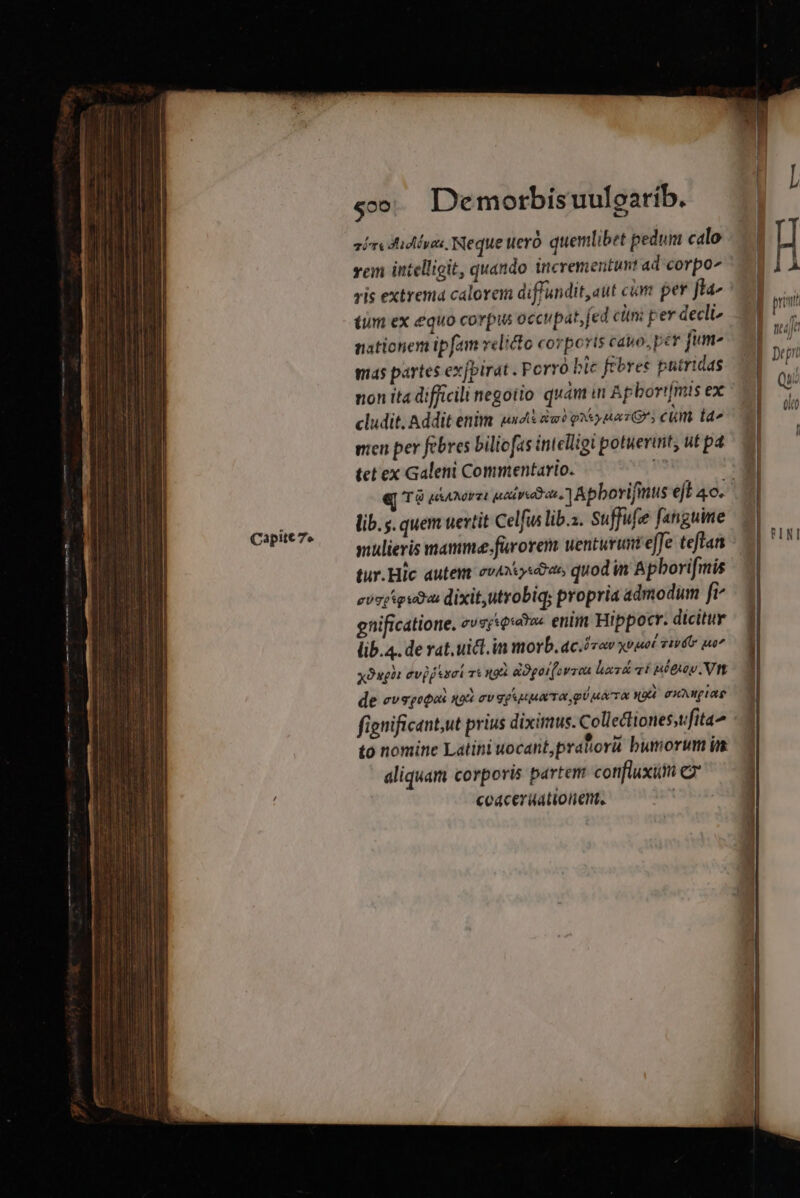 500 De morbis uulgarib.
τότε διδόναι. Neque uerò quemlibet pedum calo
rem intelligit, quando incrementum ad corpo-
ris extrema calorem diffundit, aut cùm per sta-
tum ex æquo corpus occupat, sed cùm per decli-
nationem ipsam relicto corporis cauo, per sum-
mas partes exspirat. Porrò hîc febres putridas
non ita difficili negotio quàm in Aphorismis ex
cludit. Addit enim μηδὲ ἀπὸ φλέγματος, cùm ta-
men per febres biliosas intelligi potuerint, ut pa
tet ex Galeni Commentario.
¶ Τῷ μέλλοντι μαίνεσθαι.] Aphorismus est 40.
lib. 5. quem uertit Celsus lib. 2. Suffusæ sanguine
Capite 7.
mulieris mammæ, furorem uenturum esse testan
tur. Hîc autem συλλέγεσθαι, quod in Aphorismis
συστρέφεσθαι dixit, utrobiq; propria admodum si-
gnificatione. συστρέφεσθαι enim Hippocr. dicitur
lib. 4. de rat. uict. in morb. ac. ὅταν χυμοί τινες μο-
χθηροὶ συῤῥέωσί τε καὶ ἀθροίζωνται κατά τι μόριον. Vn
de συστροφαὶ καὶ συστρέμματα, φύματα καὶ σκληρίας
significant, ut prius diximus. Collectiones, usita-
to nomine Latini uocant, prauorũ humorum in
aliquam corporis partem confluxum &
coaceruationem.
L
H
primũ
Depri
FINI